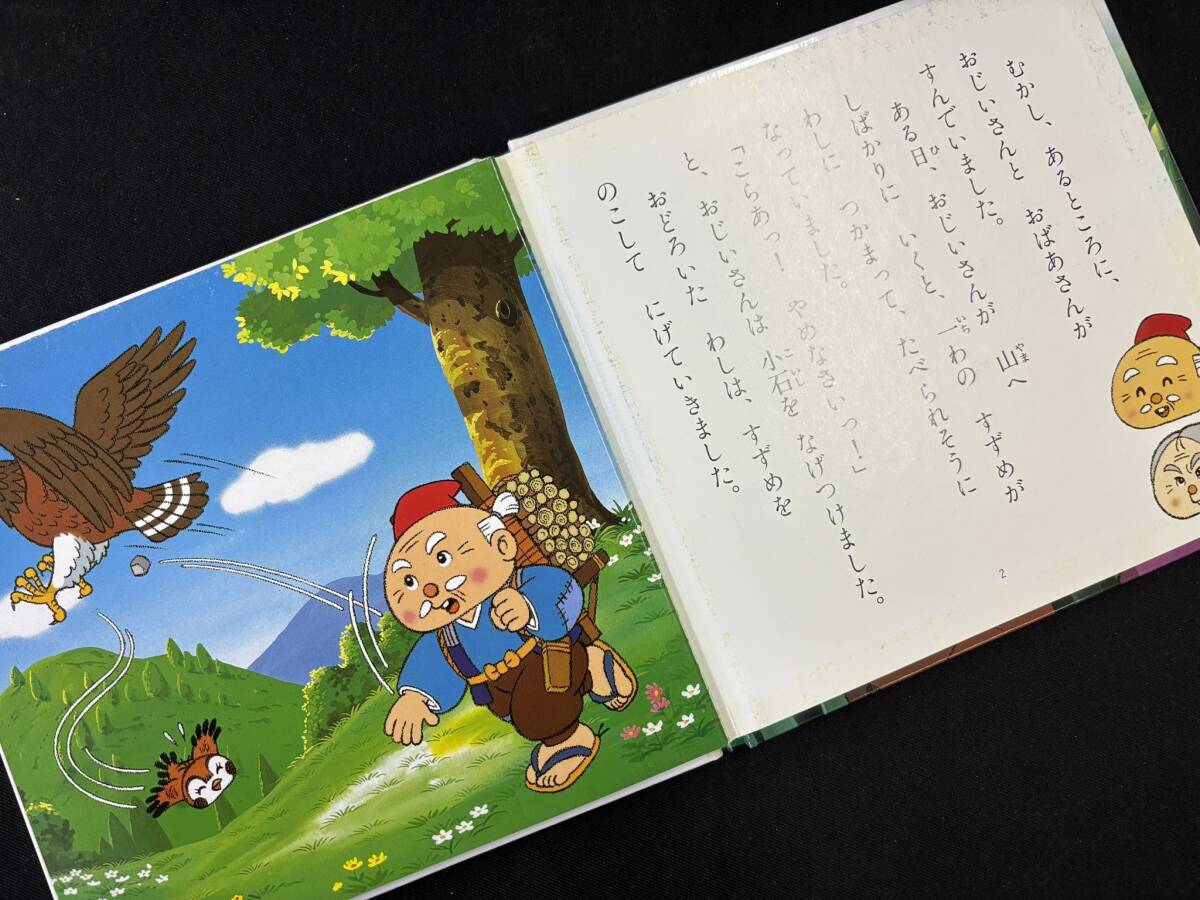 むかし、あるところに、
おじいさんと　おばあさんが
すんでいました。
ある日、おじいさんが　山へ
しばかりに　いくと、一わの　すずめが
わしに　つかまって、たべられそうに
なっていました。
「こらあっ！　やめなさいっ！」
と、おじいさんは　小石を　なげつけました。
おどろいた　わしは、すずめを
のこして　にげていきました。
2